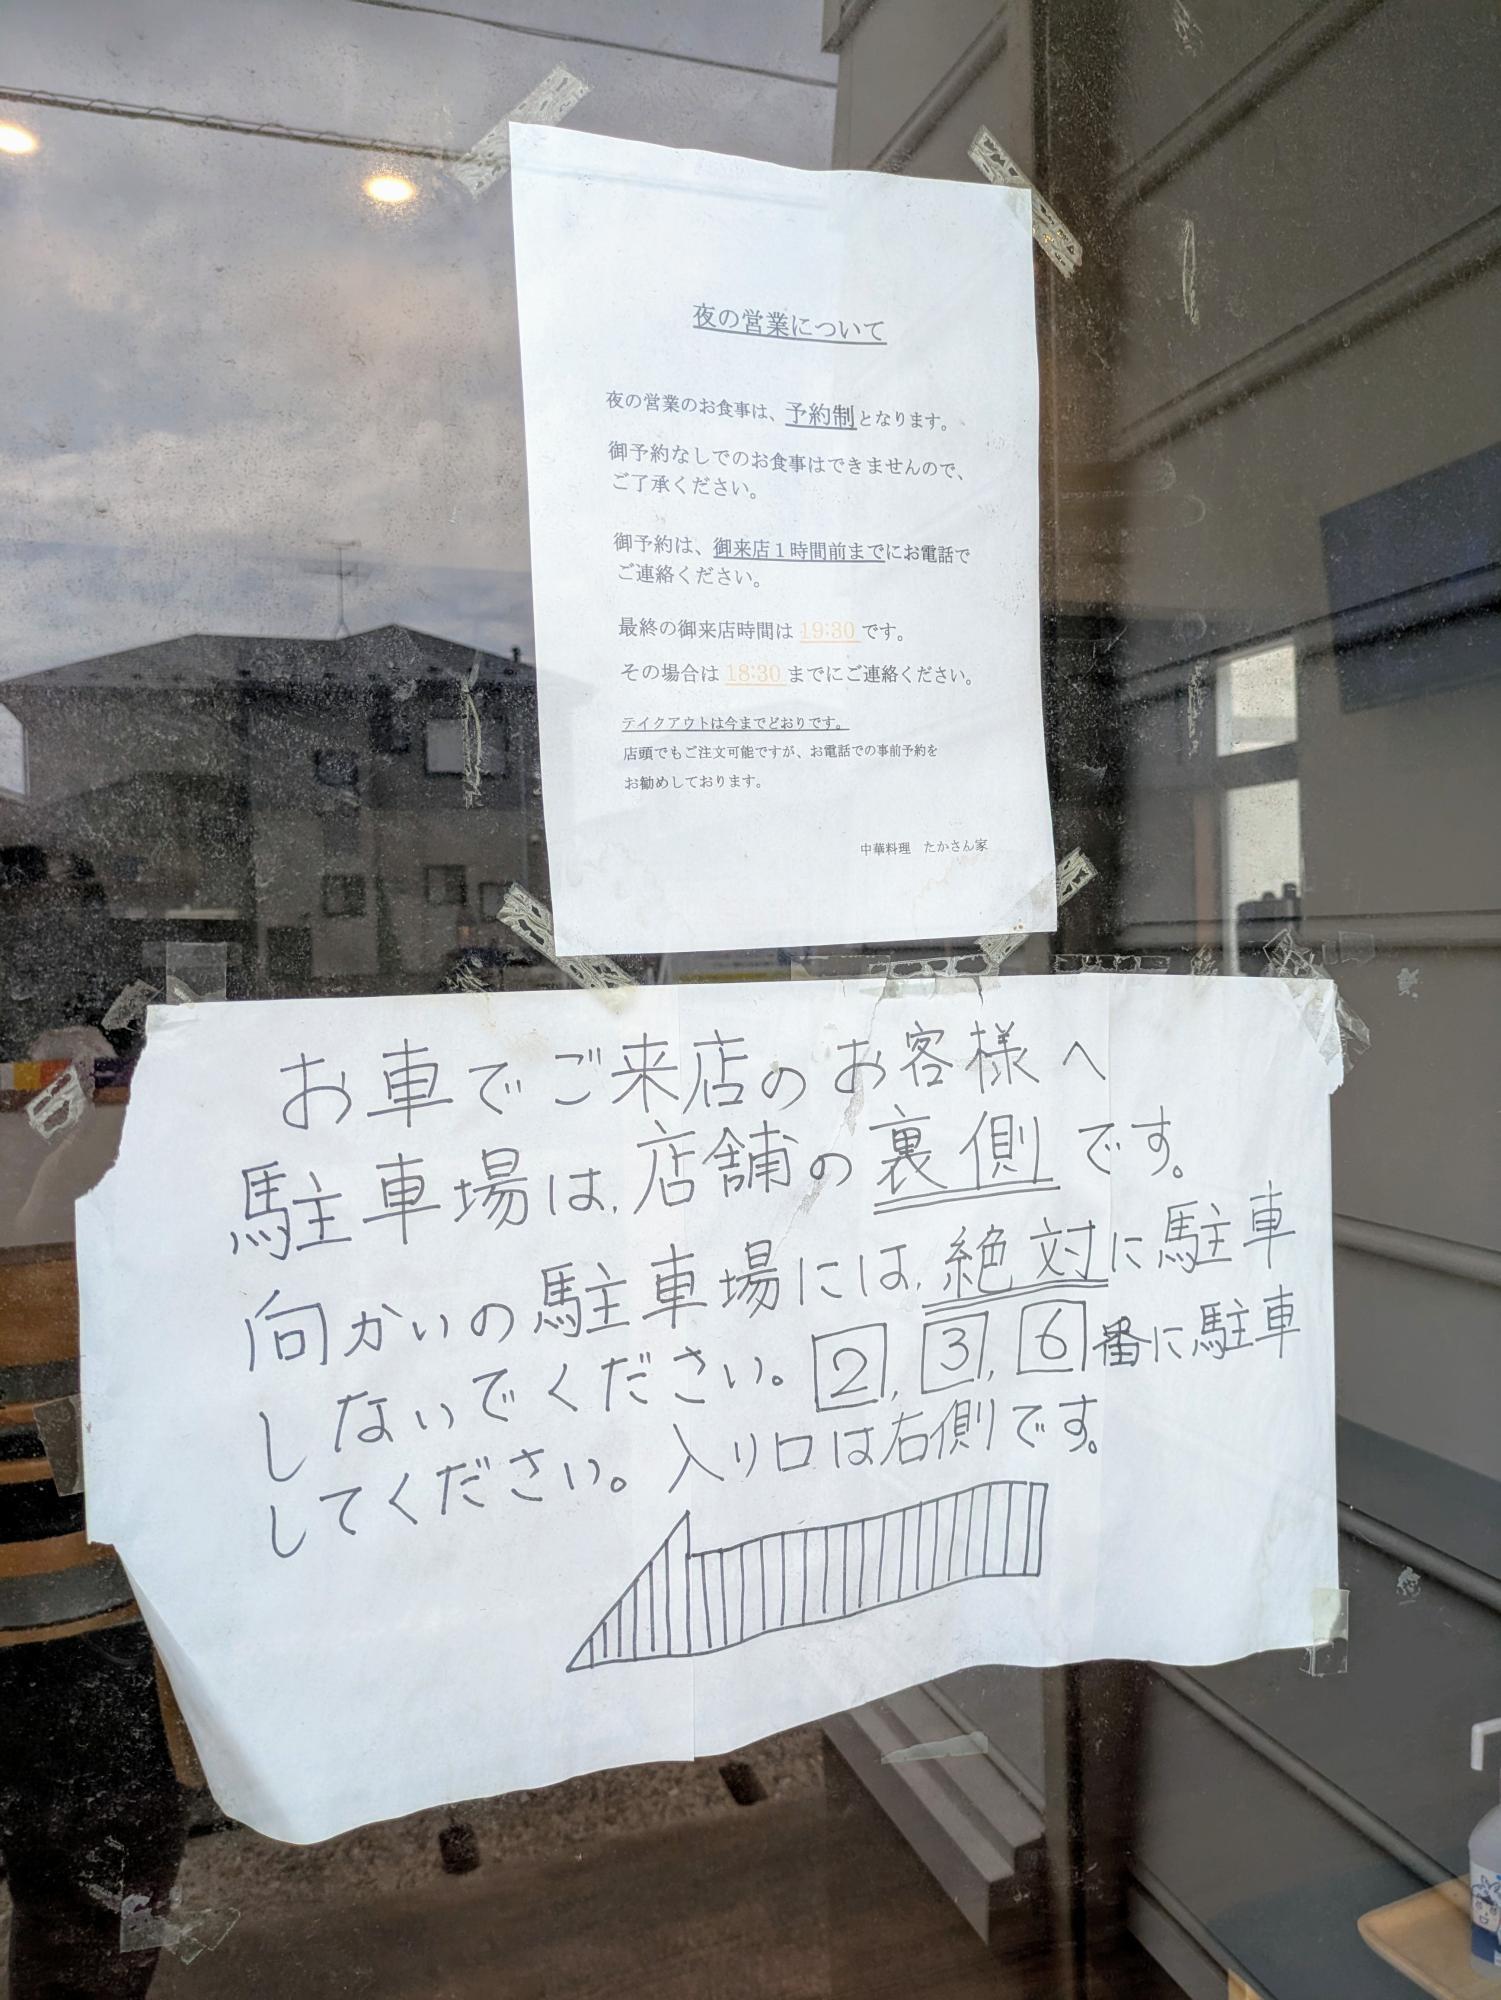 夜の営業について
夜の営業のお食事は、予約制となります。
御予約なしでのお食事はできませんので、
ご了承ください。
御予約は、御来店１時間前までにお電話で
ご連絡ください。
最終の御来店時間は 19:30 です。
その場合は 18:30 までにご連絡ください。
テイクアウトは今までどおりです。
店頭でもご注文可能ですが、お電話での事前予約を
お勧めしております。
中華料理　たかさん家
お車でご来店のお客様へ
駐車場は、店舗の裏側です。
向かいの駐車場には、絶対に駐車
しないでください。2, 3, 6番に駐車
してください。入り口は右側です。